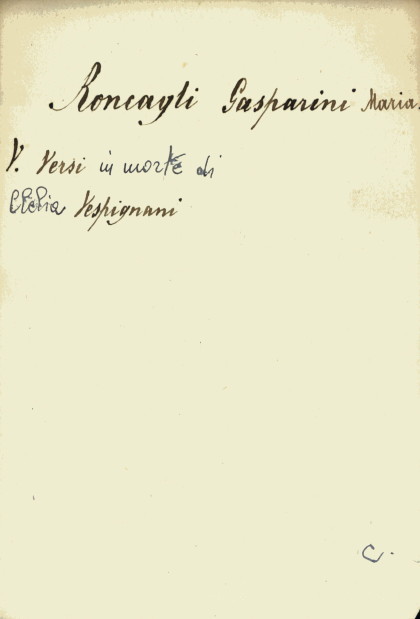 Roncagli Gasparini Maria.
V. Versi in morte di
Clelia Vespignani
C.